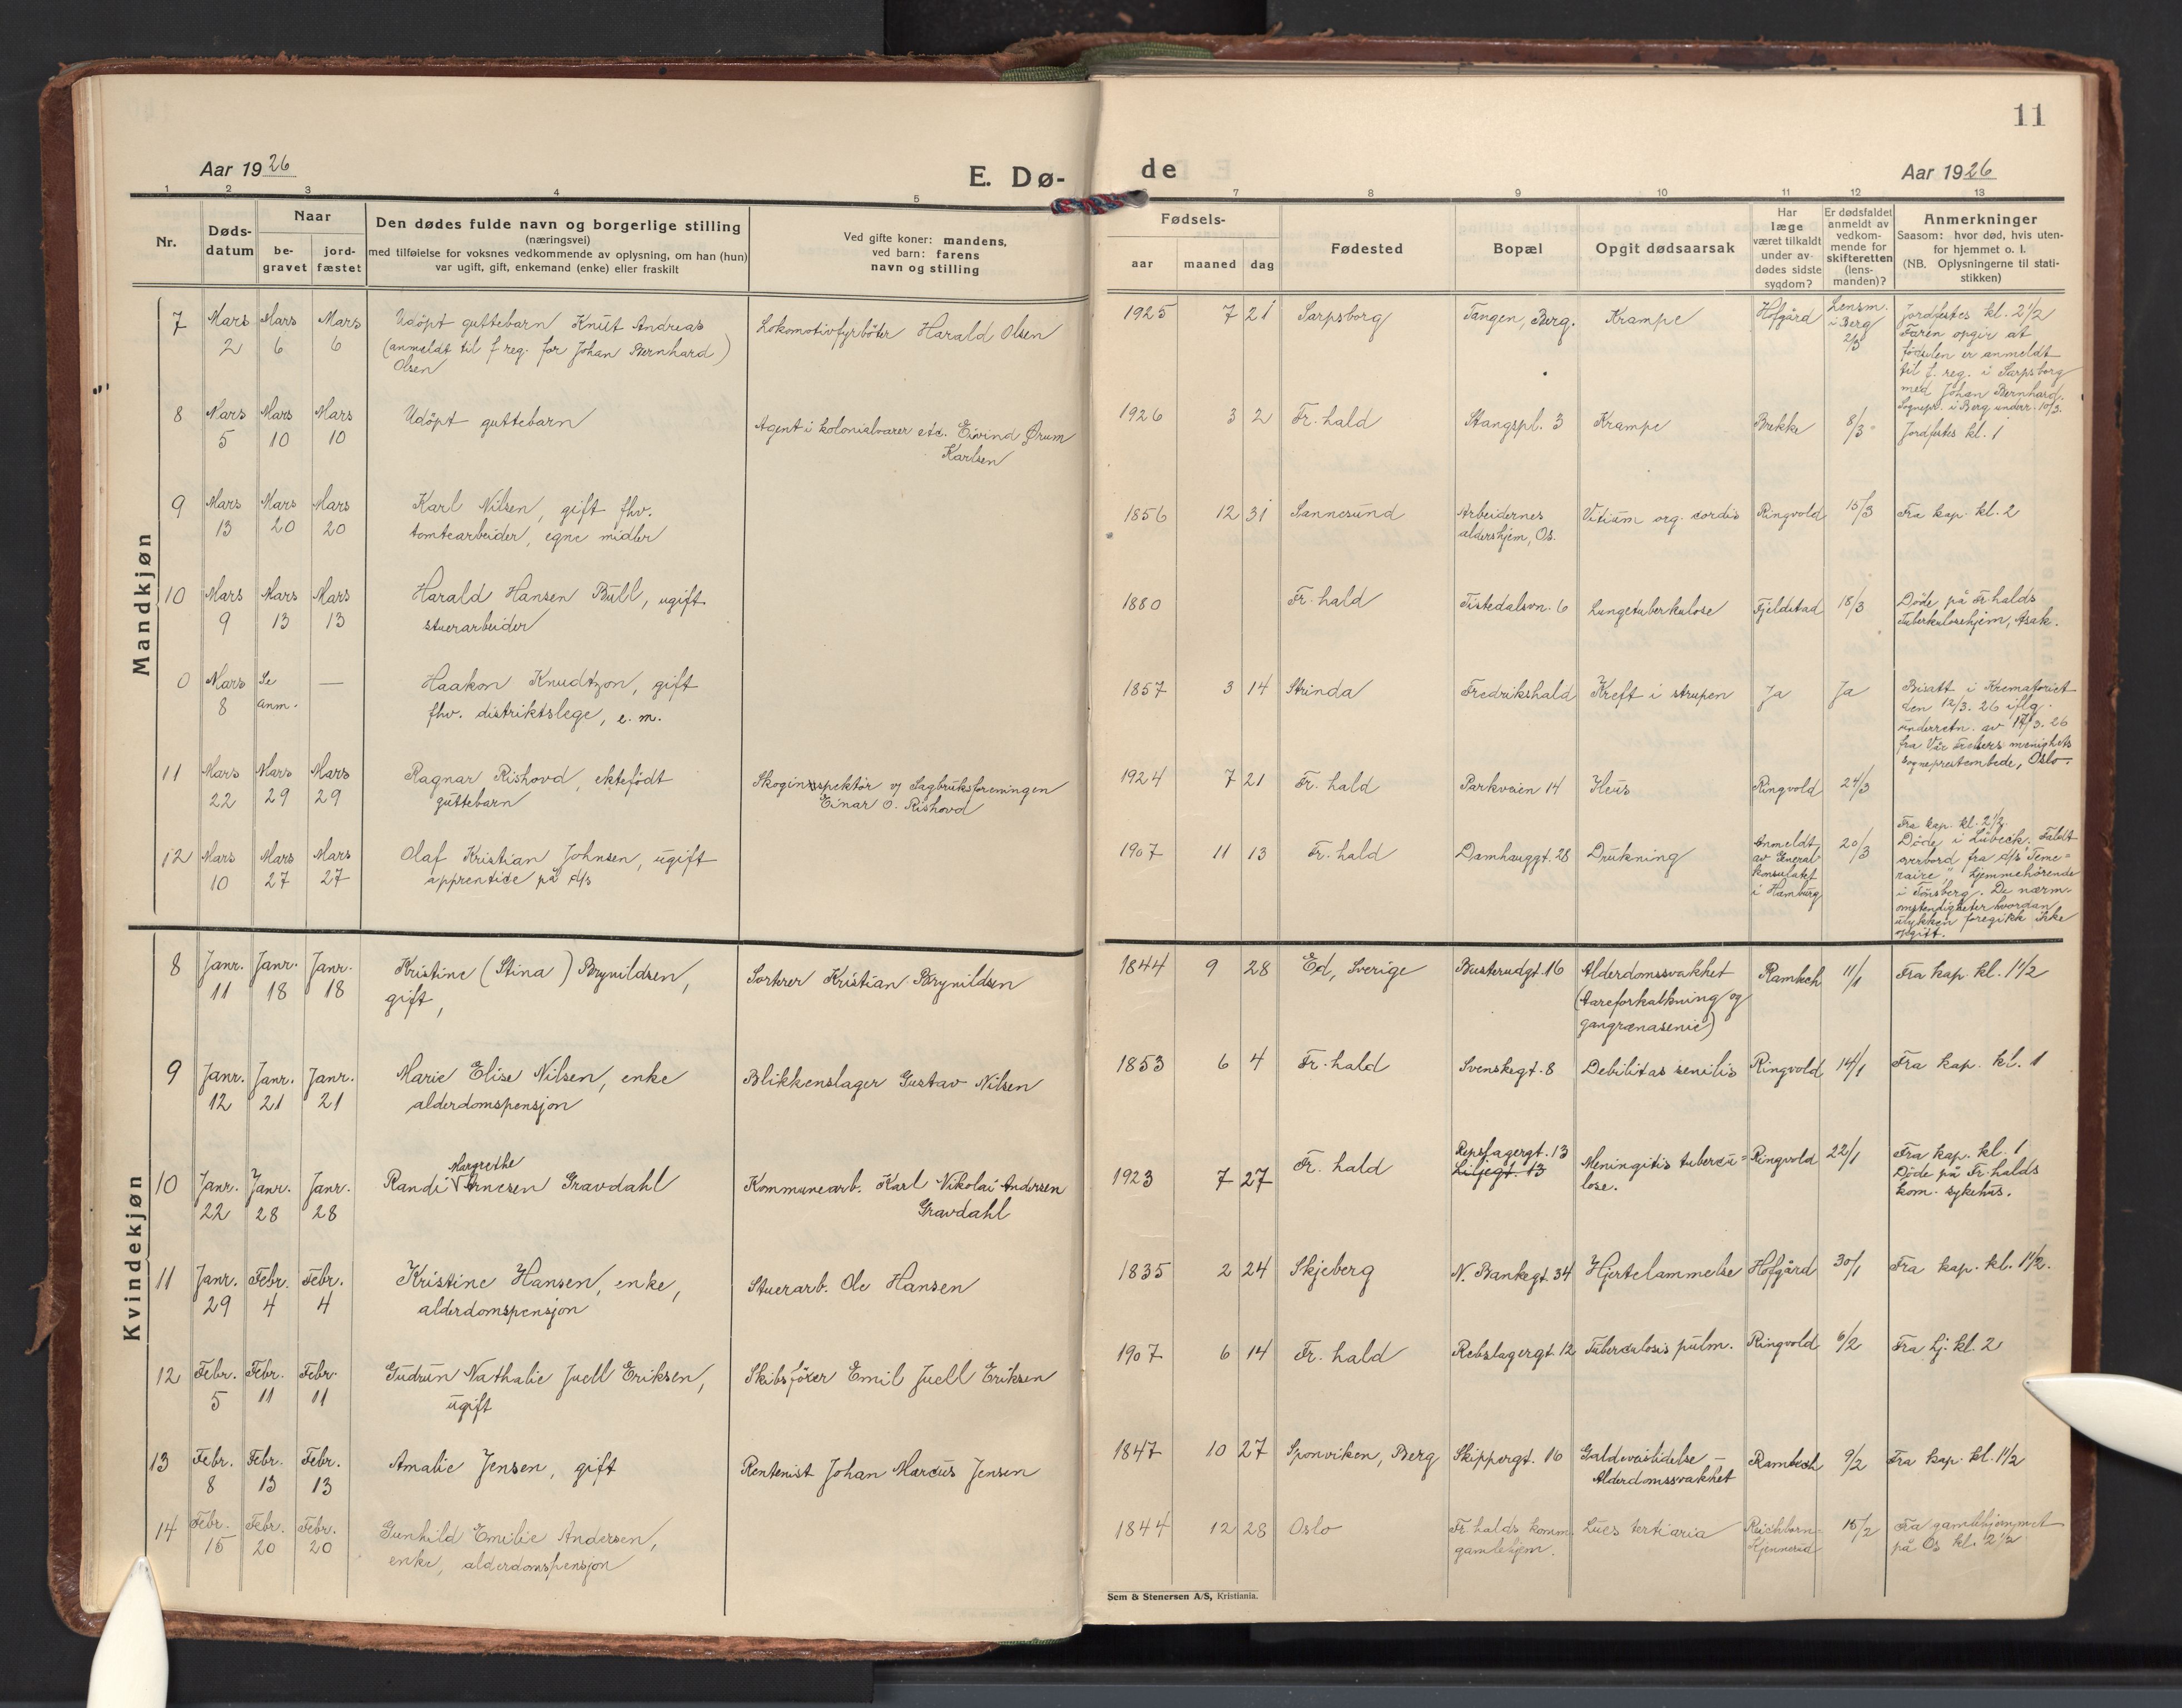 11
Aar 1926
E. Dø-
de
Aar 1926
1 2 3 4 5 7 8 9 10 11 12 13
Nr.
Døds-
datum
Naar
be-
gravet
jord-
fæstet
Den dødes fulde navn og borgerlige stilling
(næringsvei)
med tilføielse for voksnes vedkommende av oplysning, om han (hun)
var ugift, gift, enkemand (enke) eller fraskilt
Ved gifte koner: mandens,
ved barn: farens
navn og stilling
Fødsels-
aar maaned dag
Fødested
Bopæl
Opgit dødsaarsak
Har
læge
været tilkaldt
under av-
dødes sidste
sygdom?
Er dødsfaldet
anmeldt av
vedkom-
mende for
skifteretten
(lens-
manden)?
Anmerkninger
Saasom: hvor død, hvis uten-
for hjemmet o. l.
(NB. Oplysningerne til stati-
stikken)
Mandkjøn
7 Mars 2 Mars 6 Mars 6
Udöpt guttebarn Knut Andreas
(anmeldt til f reg. for Johan Bernhard)
Olsen
Lokomotivfyrböter Harald Olsen
1925 7 21 Sarpsborg Tangen, Berg. Krampe Hofgård
Lensm.
i Berg
2/3
Jordfestes kl. 2 1/2
Faren opgir at
födselen er anmeldt
til f. reg. i Sarpsborg
med Johan Bernhard.
Sognepr. i Berg underr. 10/3.
8 Mars 5 Mars 10 Mars 10
Udöpt guttebarn
Agent i kolonialvarer etc. Eivind Ørum
Karlsen
1926 3 2 Fr. hald Stangspl. 3 Krampe Bekke 8/3
Jordfestes kl. 1
9 Mars 13 Mars 20 Mars 20
Karl Nilsen, gift fhv.
tomtearbeider, egne midler
1856 12 31 Sannesund
Arbeidernes
aldershjem, Os.
Vitium org. cordis Ringvold 15/3 Fra kap. kl. 2
10 Mars 9 Mars 13 Mars 13
Harald Hansen Bull, ugift
stuerarbeider
1880 Fr. hald Tistedalsvn. 6 Lungetuberkulose Fjeldstad 18/3
Döde på Fr.halds
Tuberkulosehjem, Asak.
0 Mars 8 Se anm. —
Haakon Knudtzon, gift
fhv. distriktslege, e. m.
1857 3 14 Strinda Fredrikshald Kreft i strupen Ja Ja
Bisatt i Krematoriet
den 12/3. 26 iflg.
underretn. av 17/3. 26
fra Vår Frelsers menighets
sogneprestembede, Oslo.
11 Mars 22 Mars 29 Mars 29
Ragnar Rishovd, ektefödt
guttebarn
Skoginspektör v/ Sagbruksforeningen
Einar O. Rishovd
1924 7 21 Fr. hald Parkveien 14 Ileus Ringvold 24/3
Fra kap. kl. 2 1/2.
12 Mars 10 Mars 27 Mars 27
Olaf Kristian Johnsen, ugift
apprentice på d/s
1907 11 13 Fr. hald Damhauggt. 28 Drukning
Anmeldt
av General
konsulatet
i Hamburg
20/3
Döde i Lübeck. Faldt
overbord fra d/s "Teme=
raire", hjemmehörende
i Tönsberg. De nærm.
omstendigheter hvordan
ulykken foregikk ikke
opgitt.
Kvindekjøn
8 Janr. 11 Janr. 18 Janr. 18
Kristine (Stina) Brynildsen,
gift,
Sorterer Kristian Brynildsen
1844 9 28 Ed, Sverige Busterudgt. 16
Alderdomssvakhet
(aareforkalkning og
gangrænasenie)
Rambech 11/1 Fra kap. kl. 1 1/2
9 Janr. 12 Janr. 21 Janr. 21
Marie Elise Nilsen, enke
alderdomspensjon
Blikkenslager Gustav Nilsen
1853 6 4 Fr. hald Svenskegt. 8 Debilitas senilis Ringvold 14/1 Fra kap. kl. 1
10 Janr. 22 Janr. 28 Janr. 28
Margrethe
Randi Arnesen Gravdahl
Kommunearb. Karl Nikolai Andersen
Gravdahl
1923 7 27 Fr. hald
Repslagergt. 13
Liljegt. 13
Meningitis tubercu=
lose.
Ringvold 22/1
Fra kap. kl. 1
Döde på Fr.halds
kom. sykehus.
11 Janr. 29 Febr. 4 Febr. 4
Kristine Hansen, enke,
alderdomspensjon
Stuerarb. Ole Hansen
1835 2 24 Skjeberg N. Bankegt. 34 Hjertelammelse Hofgård 30/1 Fra kap. kl. 1 1/2.
12 Febr. 5 Febr. 11 Febr. 11
Gudrun Nathalie Juell Eriksen,
ugift
Skibsförer Emil Juell Eriksen
1907 6 14 Fr. hald Rebslagergt. 12 Tuberculosis pulm. Ringvold 6/2 Fra hj. kl. 2
13 Febr. 8 Febr. 13 Febr. 13
Amalie Jensen, gift
Rentenist Johan Marcus Jensen
1847 10 27 Sponviken, Berg Skippergt. 16
Galdeveislidelse –
Alderdomssvakhet
Rambech 9/2 Fra kap. kl. 1 1/2
14 Febr. 15 Febr. 20 Febr. 20
Gunhild Emilie Andersen,
enke, alderdomspensjon
1844 12 28 Oslo
Fr. halds komm.
gamlehjem.
Lues tertiaria
Reichborn-
Kjennerud
15/2
Fra gamlehjemmet
på Os kl. 2 1/2
Sem & Stenersen A/S, Kristiania.